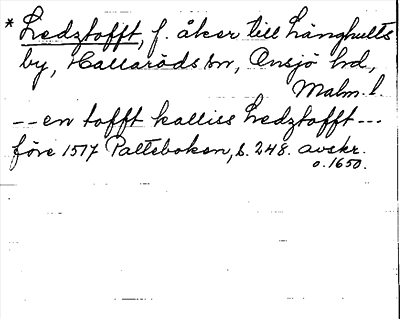 *Ledztofft, f. åker till Långhults
by, Hallaröds sn, Onsjö hd,
Malm. l.
-- en tofft kalliss Ledztofft ---
före 1517 Palteboken, s. 248. avskr.
o. 1650.